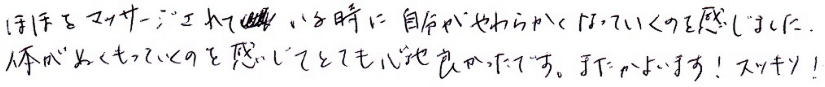 ほほをマッサージされている時に自分がやわらかくなっていくのを感じました.
体がぬくもっていくのを感じてとても心地良かったです。またかよいます!スッキリ!